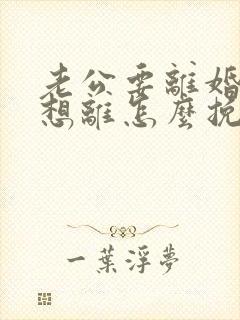 老公要離婚
想離怎麼挽
一葉浮夢